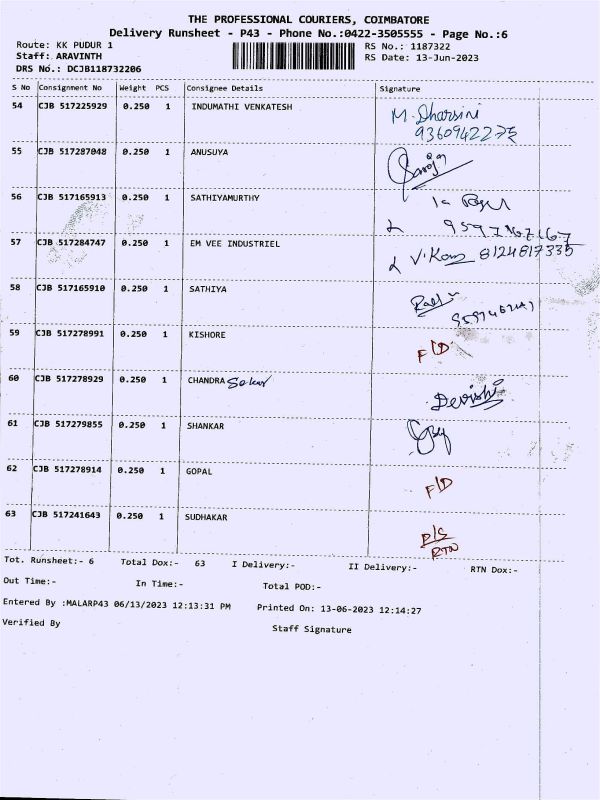 THE PROFESSIONAL COURIERS, COIMBATORE
Delivery Runsheet - P43 - Phone No.:0422-3505555 - Page No.:6
Route: KK PUDUR 1 RS No.: 1187322
Staff: ARAVINTH RS Date: 13-Jun-2023
DRS No.: DCJB118732206
S No Consignment No Weight PCS Consignee Details Signature
54 CJB 517225929 0.250 1 INDUMATHI VENKATESH M. Dharsini
55 CJB 517287048 0.250 1 ANUSUYA
56 CJB 517165913 0.250 1 SATHIYAMURTHY
57 CJB 517284747 0.250 1 EM VEE INDUSTRIEL 8124817335
58 CJB 517165910 0.250 1 SATHIYA
59 CJB 517278991 0.250 1 KISHORE F/D
60 CJB 517278929 0.250 1 CHANDRA Sekar Devishi
61 CJB 517279855 0.250 1 SHANKAR
62 CJB 517278914 0.250 1 GOPAL F/D
63 CJB 517241643 0.250 1 SUDHAKAR
RTN
Tot. Runsheet:- 6 Total Dox:- 63 I Delivery:- II Delivery:- RTN Dox:-
Out Time:- In Time:- Total POD:-
Entered By :MALARP43 06/13/2023 12:13:31 PM Printed On: 13-06-2023 12:14:27
Verified By Staff Signature